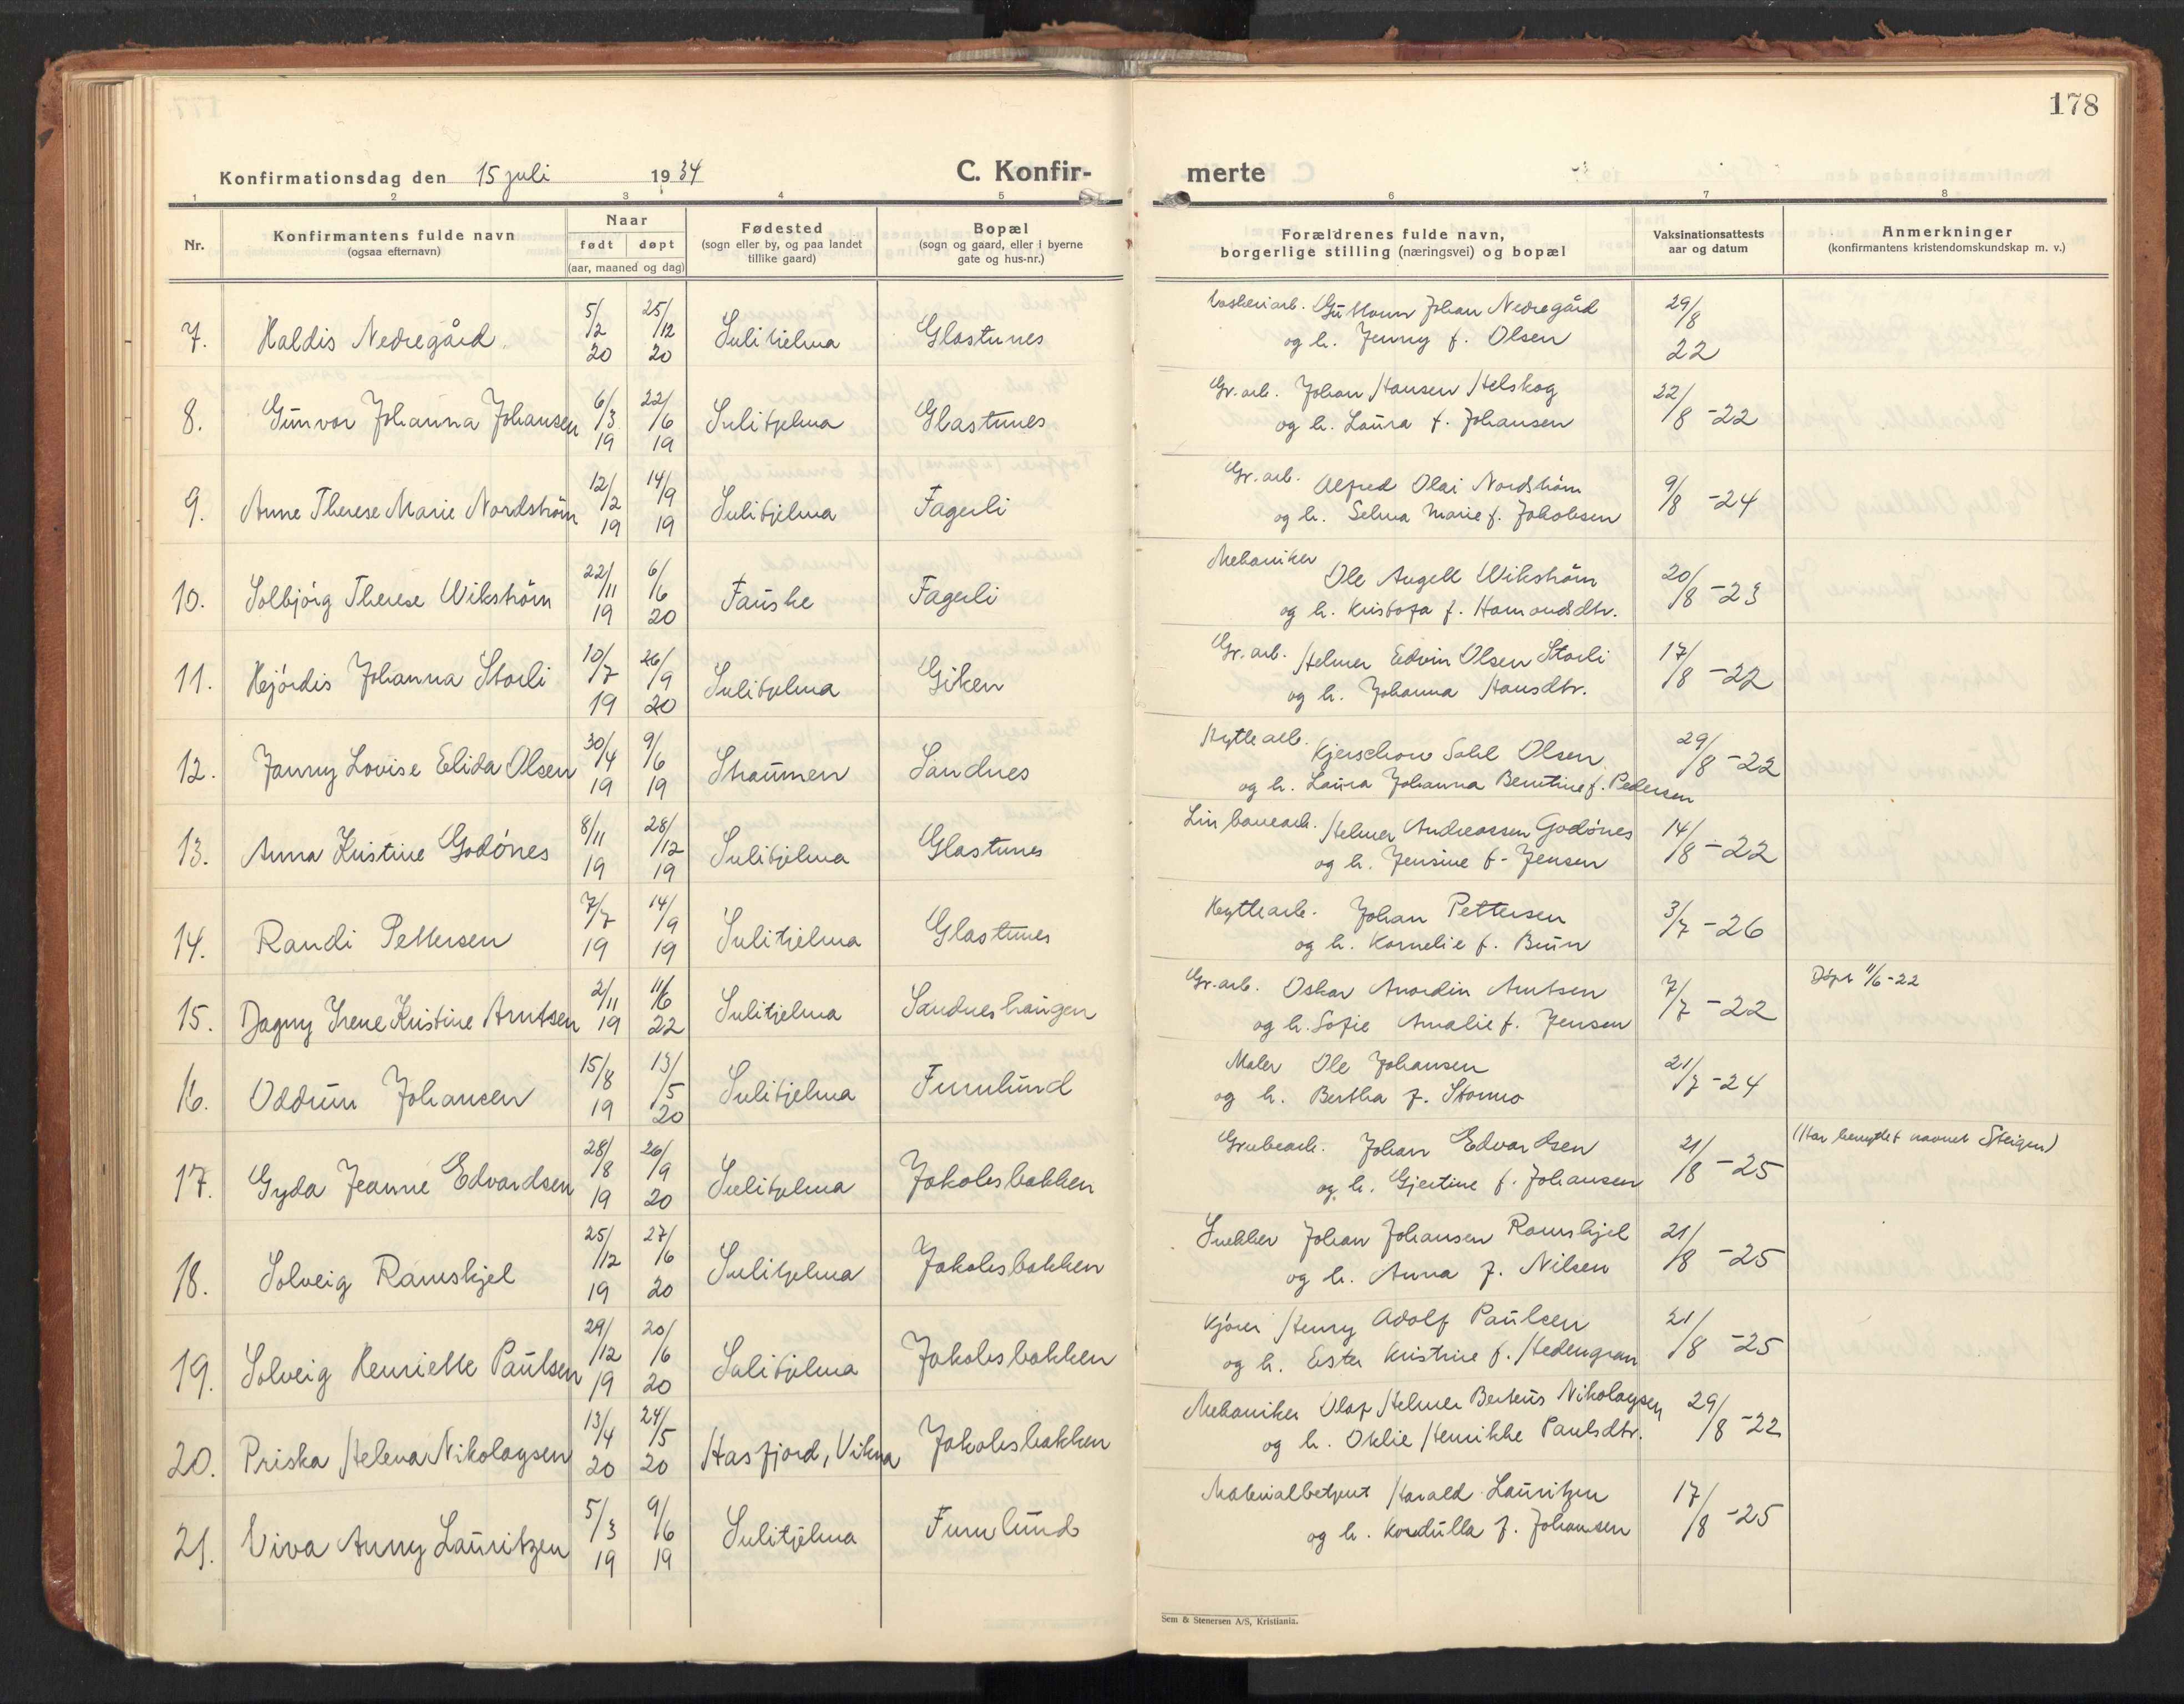 178
Konfirmationsdag den 15 juli 1934
C. Konfir-
merte
1 2 3 4 5 6 7 8
Nr.
Konfirmantens fulde navn
(ogsaa efternavn)
Naar
født døpt
(aar, maaned og dag)
Fødested
(sogn eller by, og paa landet
tillike gaard)
Bopæl
(sogn og gaard, eller i byerne
gate og hus-nr.)
Forældrenes fulde navn,
borgerlige stilling (næringsvei) og bopæl
Vaksinationsattests
aar og datum
Anmerkninger
(konfirmantens kristendomskundskap m. v.)
7. Haldis Nedregård 5/2 20 25/12 20 Sulitjelma Glastunes
Johan Nedregård
og h. Jenny f. Olsen
29/8 22
8. Gunvor Johanna Johansen 6/3 19 22/6 19 Sulitjelma Glastunes
Gr. arb. Johan Hansen Helskog
og h. Laura f. Johansen
22/8 -22
9. Anne Therese Marie Nordstrøm 12/2 19 14/9 19 Sulitjelma Fagerli
Gr. arb. Alfred Olai Nordstrøm
og h. Selma Marie f. Jakobsen
9/8 -24
10. Solbjørg Therese Wikstrøm 22/11 19 6/6 20 Fauske Fagerli
Mekaniker Ole Angell Wikstrøm
og h. Kristofa f. Hamondsdtr.
20/8 -23
11. Hejørdis Johanna Storli 10/7 19 26/9 20 Sulitjelma Giken
Gr. arb. Helmer Edvin Olsen Storli
og h. Johanna Hansdtr.
17/8 -22
12. Janny Lovise Elida Olsen 30/4 19 9/6 19 Straumen Sandnes
Hyttearb. Kjerschow Olsen
og h. Laura Johanna Berntine f. Pedersen
29/8 -22
13. Anna Kristine Godønes 8/11 19 28/12 19 Sulitjelma Glastunes
Linbanearb. Helmer Andreassen Godønes
og h. Jensine f. Jensen
14/8 -22
14. Randi Pettersen 7/7 19 14/9 19 Sulitjelma Glastunes
Hyttearb. Johan Pettersen
og h. Kornelie f. Buun
3/7 -26
15. Dagny Irene Kristine Arntsen 2/11 19 11/6 22 Sulitjelma Sandneshaugen
Gr. arb. Oskar Anordin Arntsen
og h. Sofie Amalie f. Jensen
7/7 -22
Døpt 11/6-22
16. Oddrun Johansen 15/8 19 13/5 20 Sulitjelma Furulund
Maler Ole Johansen
og h. Bertha f. Stormo
21/7 -24
17. Gyda Jeanne Edvardsen 28/8 19 26/9 20 Sulitjelma Jakobsbakken
Grubearb. Johan Edvardsen
og h. Gjertine f. Johansen
21/8 -25
(Har benyttet navnet Steigen)
18. Solveig Ramskjel 25/12 19 27/6 20 Sulitjelma Jakobsbakken
Snekker Johan Johansen Ramskjel
og h. Anna f. Nilsen
21/8 -25
19. Solveig Henriette Paulsen 29/12 19 20/6 20 Sulitjelma Jakobsbakken
Kjører Henry Adolf Paulsen
og h. Ester Kristine f. Hedengran
21/8 -25
20. Priska Helena Nikolaysen 13/4 20 24/5 20 Hasfjord, Vikna Jakobsbakken
Mekaniker Olaf Helmer Berteus Nikolaysen
og h. Oklie Henrikke Paulsdtr.
29/8 -22
21. Viva Anny Lauritzen 5/3 19 9/6 19 Sulitjelma Furulund
Materialbetjent Harald Lauritzen
og h. Kordulla f. Johansen
17/8 -25
Sem & Stenersen A/S, Kristiania.